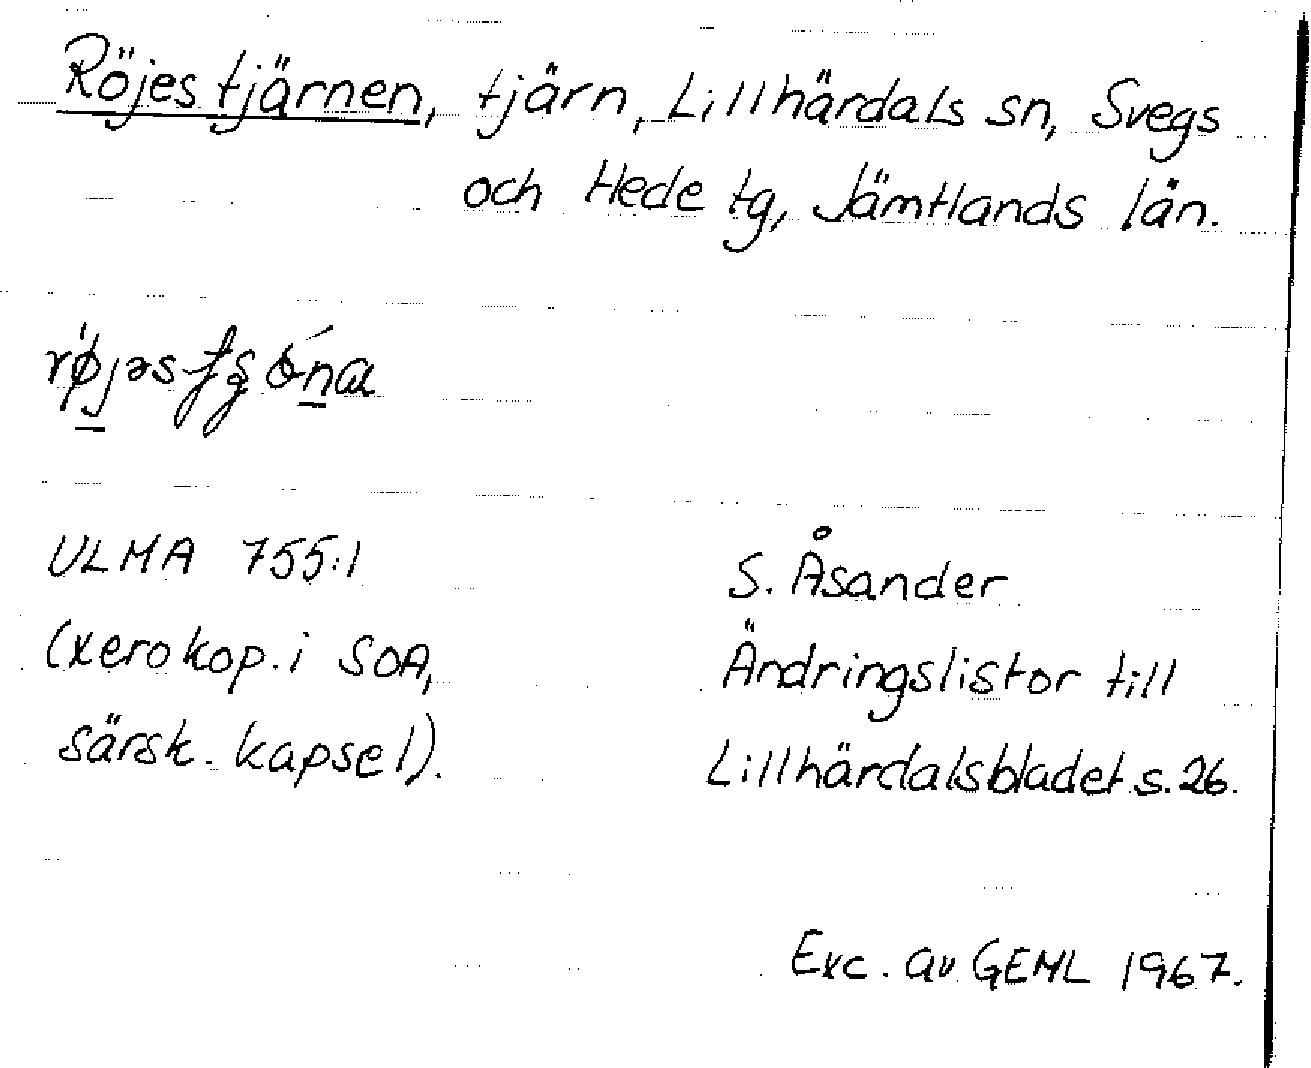 Röjestjärnen, tjärn, Lillhärdals sn, Svegs
och Hede tg, Jämtlands län.
ULMA 755:1
(xerokop. i SOA,
särsk. kapsel).
S. Åsander
Ändringslistor till
Lillhärdalsbladet s. 26.
Exc. av GEML 1967.